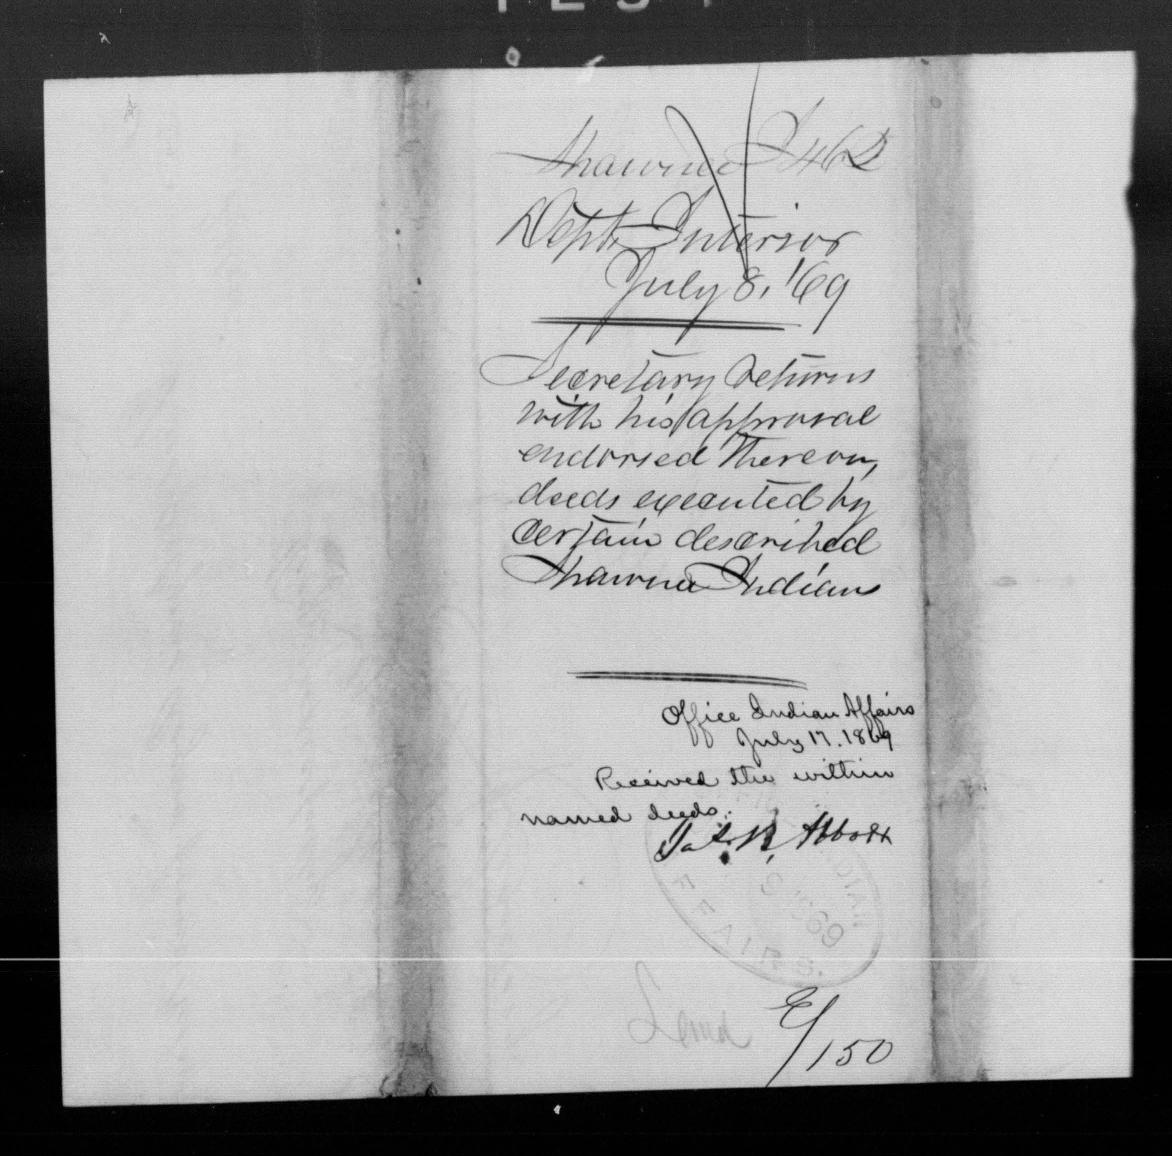 Shawnee I 462
Dept. Interior
July 8, '69
Secretary returns
with his approval
endorsed thereon,
deeds executed by
certain described
Shawnee Indians
Office Indian Affairs
July 17. 1869
Received the within
named deeds.
Abbott
INDIAN
1869
AFFAIRS.
Land
150